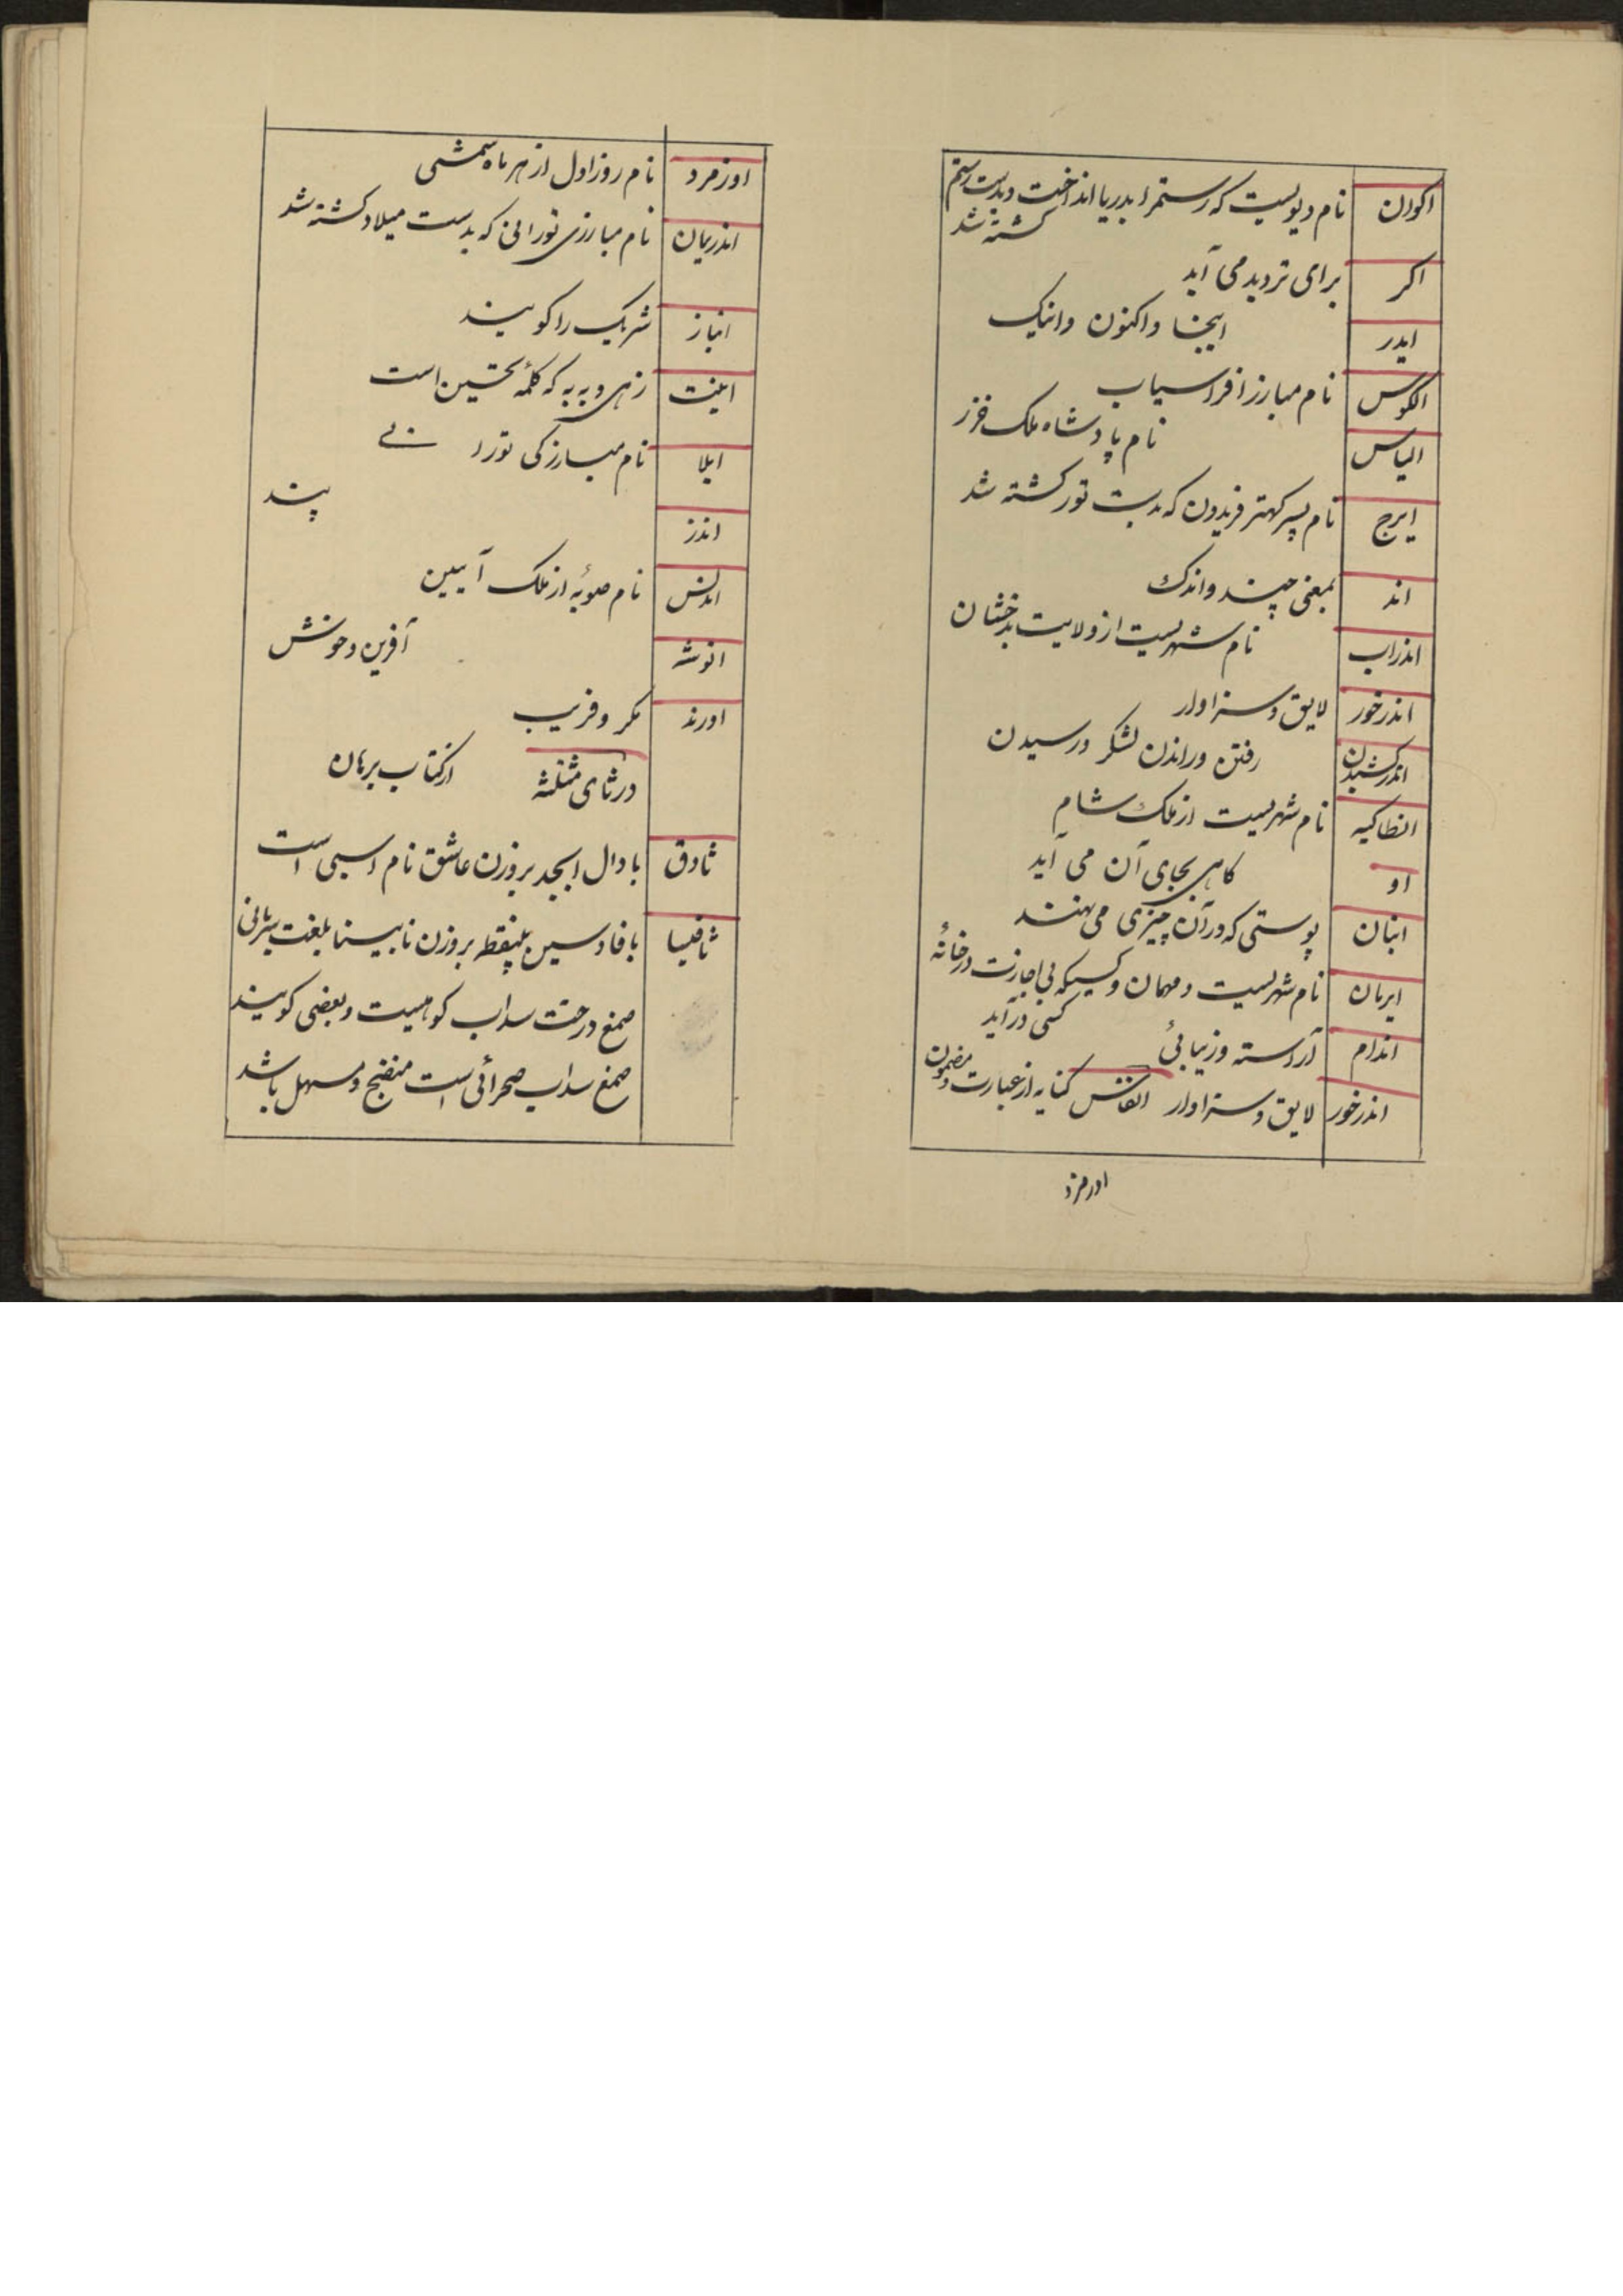 اکوان نام دیویست که رستمرا بدریا انداخت و بدست رستم
کشته شد
اکر برای تردید می آید
ایدر اینجا و اکنون و اینک
الکوس نام مبارز افراسیاب
الیاس نام پادشاه ملک خزز
ایرج نام پسر کهتر فریدون که بدست تور کشته شد
اند بمعنی چند و اندک
اندراب نام شهریست از ولایت بدخشان
اندرخور لایق و سزاوار
اندرکشیدن رفتن و راندن لشکر و رسیدن
انطاکیه نام شهریست از ملک شام
او کاهی بجای آن می آید
انبان پوستی که در آن چیزی می نهند
ایرمان نام شهریست و مهمان و کسیکه بی اجازت در خانهٔ
کسی در آید
اندام آراسته و زیبائی
اندرخور لایق و سزاوار انفاس کنایه از عبارت و مضمون
اورمزد
اورمزد نام روز اول از هر ماه شمسی
اندریمان نام مبارزی تورانی که بدست میلاد کشته شد
انباز شریک را کویند
اینت زهی و به به که کلمهٔ تحسین است
ایلا نام مبارزکی تورا نے
اندز پند
اندلس نام صوبهٔ از ملک آیین
انوشه آفرین و خوش
اورند مکر و فریب
در ثای مثلثه از کتاب برهان
ثادق با دال ابجد بر وزن عاشق نام اسبی است
ثافسیا با فا و سین بینقطه بر وزن نابینا بلغت سریانی
صمغ درخت سداب کوهیست و بعضی کویند
صمغ سداب صحرائی است منضج و مسهل باشد